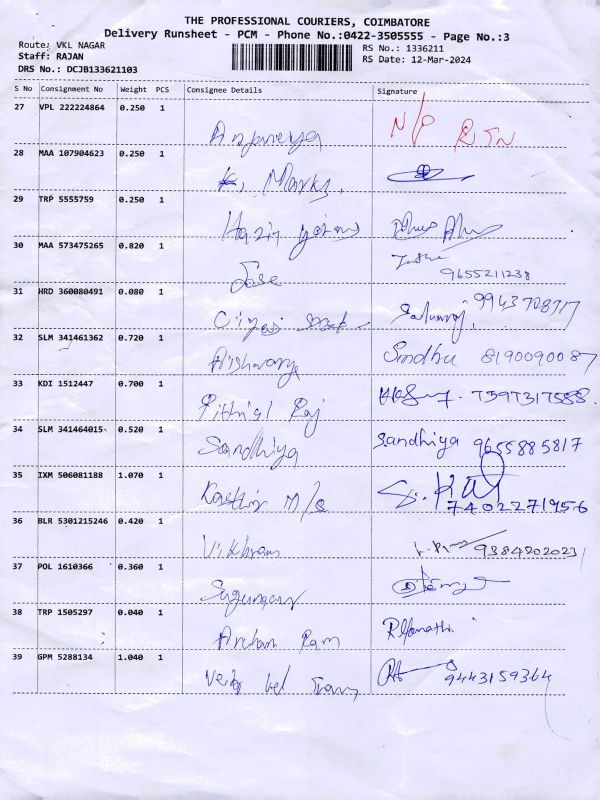 THE PROFESSIONAL COURIERS, COIMBATORE
Delivery Runsheet - PCM - Phone No.:0422-3505555 - Page No.:3
Route: VKL NAGAR
RS No.: 1336211
Staff: RAJAN
RS Date: 12-Mar-2024
DRS No.: DCJB133621103
S No Consignment No Weight PCS Consignee Details Signature
27 VPL 222224864 0.250 1
N/P RTN
28 MAA 107904623 0.250 1
K. Marks.
29 TRP 5555759 0.250 1
30 MAA 573475265 0.820 1
Jose 9655211238
31 HRD 360080491 0.080 1
32 SLM 341461362 0.720 1
Aishwarya Sindhu 8190090087
33 KDI 1512447 0.700 1
Raj 7397317588
34 SLM 341464015 0.520 1
Sandhiya S.andhiya 9655885817
35 IXM 506081188 1.070 1
M/s 7402271956
36 BLR 5301215246 0.420 1
Vikhram 9384202023
37 POL 1610366 0.360 1
38 TRP 1505297 0.040 1
Ram
39 GPM 5288134 1.040 1
vel 9443159364